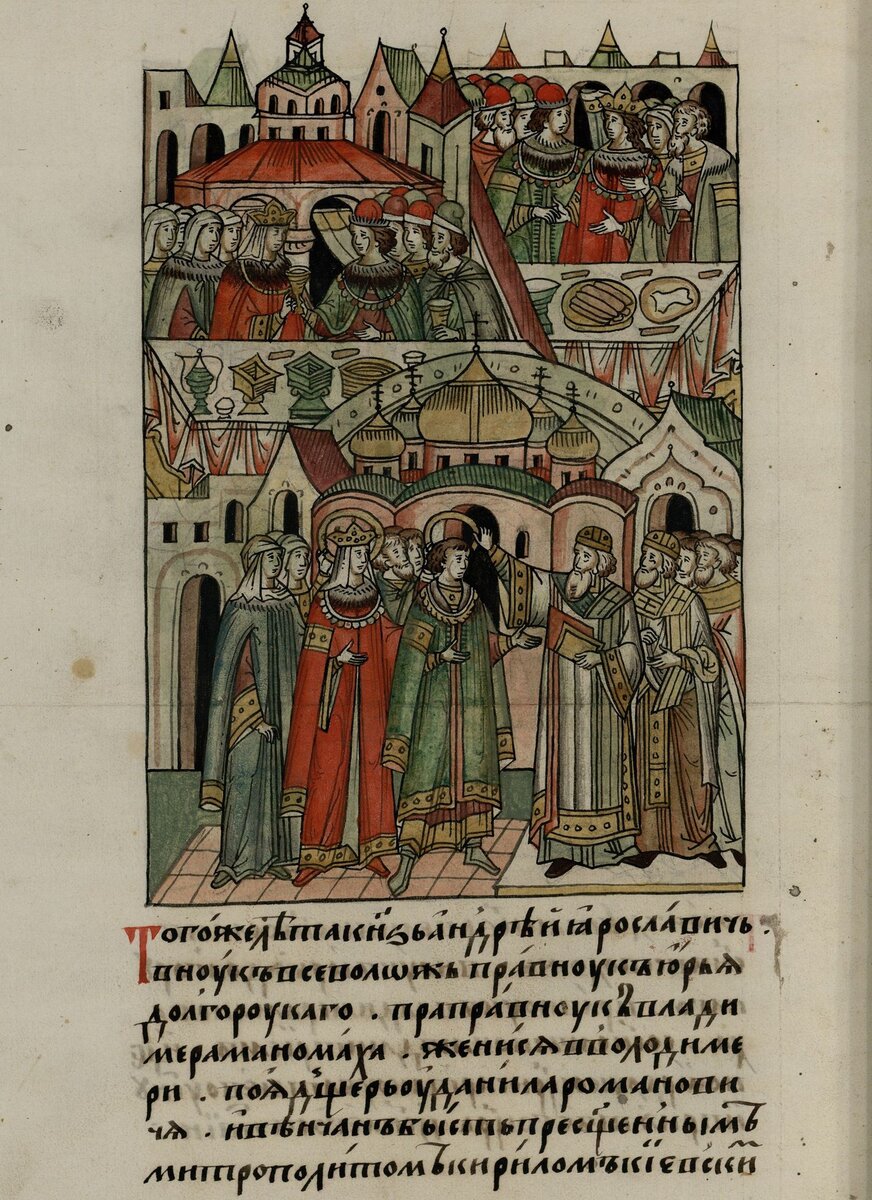 Того́же лѣ́та кн҃зь андрѣ́й ꙗросла́вичь .
вноукъ всеволѡжь пра́вноукъ ю́рья
долгороукаго . прапра́вноукъ влади
мера манома́ха . жени́ся в володиме
ри . поя́ дще́рь оу данила романови
чя . и вѣнчанъ бы́сть прес҃ще́нным
митрополи́томъ кирі́ломъ кі́евски